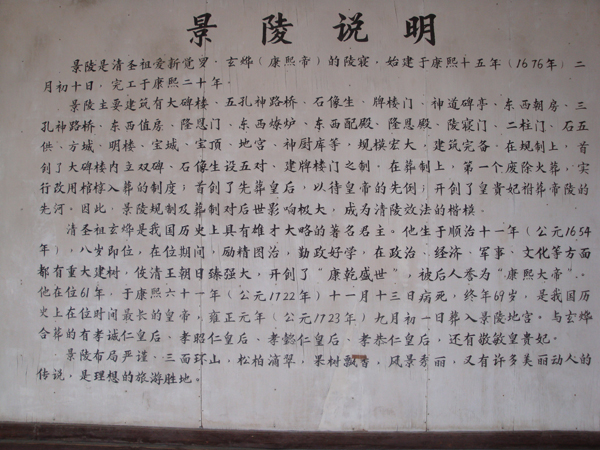 景陵说明
景陵是清圣祖爱新觉罗·玄烨(康熙帝)的陵寝，始建于康熙十五年(1676年)二
月初十日，完工于康熙二十年。
景陵主要建筑有大碑楼、五孔神路桥、石像生、牌楼门、神道碑亭、东西朝房、三
孔神路桥、东西值房、隆恩门、东西燎炉、东西配殿、隆恩殿、陵寝门、二柱门、石五
供、方城、明楼、宝城、宝顶、地宫、神厨库等，规模宏大，建筑完备。在规制上，首
创了大碑楼内立双碑、石像生设五对、建牌楼门之制，在葬制上，第一个废除火葬，实
行改用棺椁入葬的制度；首创了先葬皇后，以待皇帝的先例；开创了皇貴妃祔葬帝陵的
先河。因此，景陵规制及葬制对后世影响极大，成为清陵效法的楷模。
清圣祖玄烨是我国历史上具有雄才大略的著名君主。他生于顺治十一年(公元1654
年)，八岁即位，在位期间，励精图治，勤政好学，在政治、经济、军事、文化等方面
都有重大建树，使清王朝日臻强大，开创了“康乾盛世”，被后人称为“康熙大帝”。
他在位61年，于康熙六十一年(公元1722年)十一月十三日病死，终年69岁，是我国历
史上在位时间最长的皇帝，雍正元年(公元1723年)九月初一日葬入景陵地宫。与玄烨
合葬的有孝诚仁皇后、孝昭仁皇后、孝懿仁皇后、孝恭仁皇后，还有敬敏皇貴妃。
景陵布局严谨、三面环山，松柏滴翠，果树飘香，风景秀丽，又有许多美丽动人的
传说，是理想的旅游胜地。